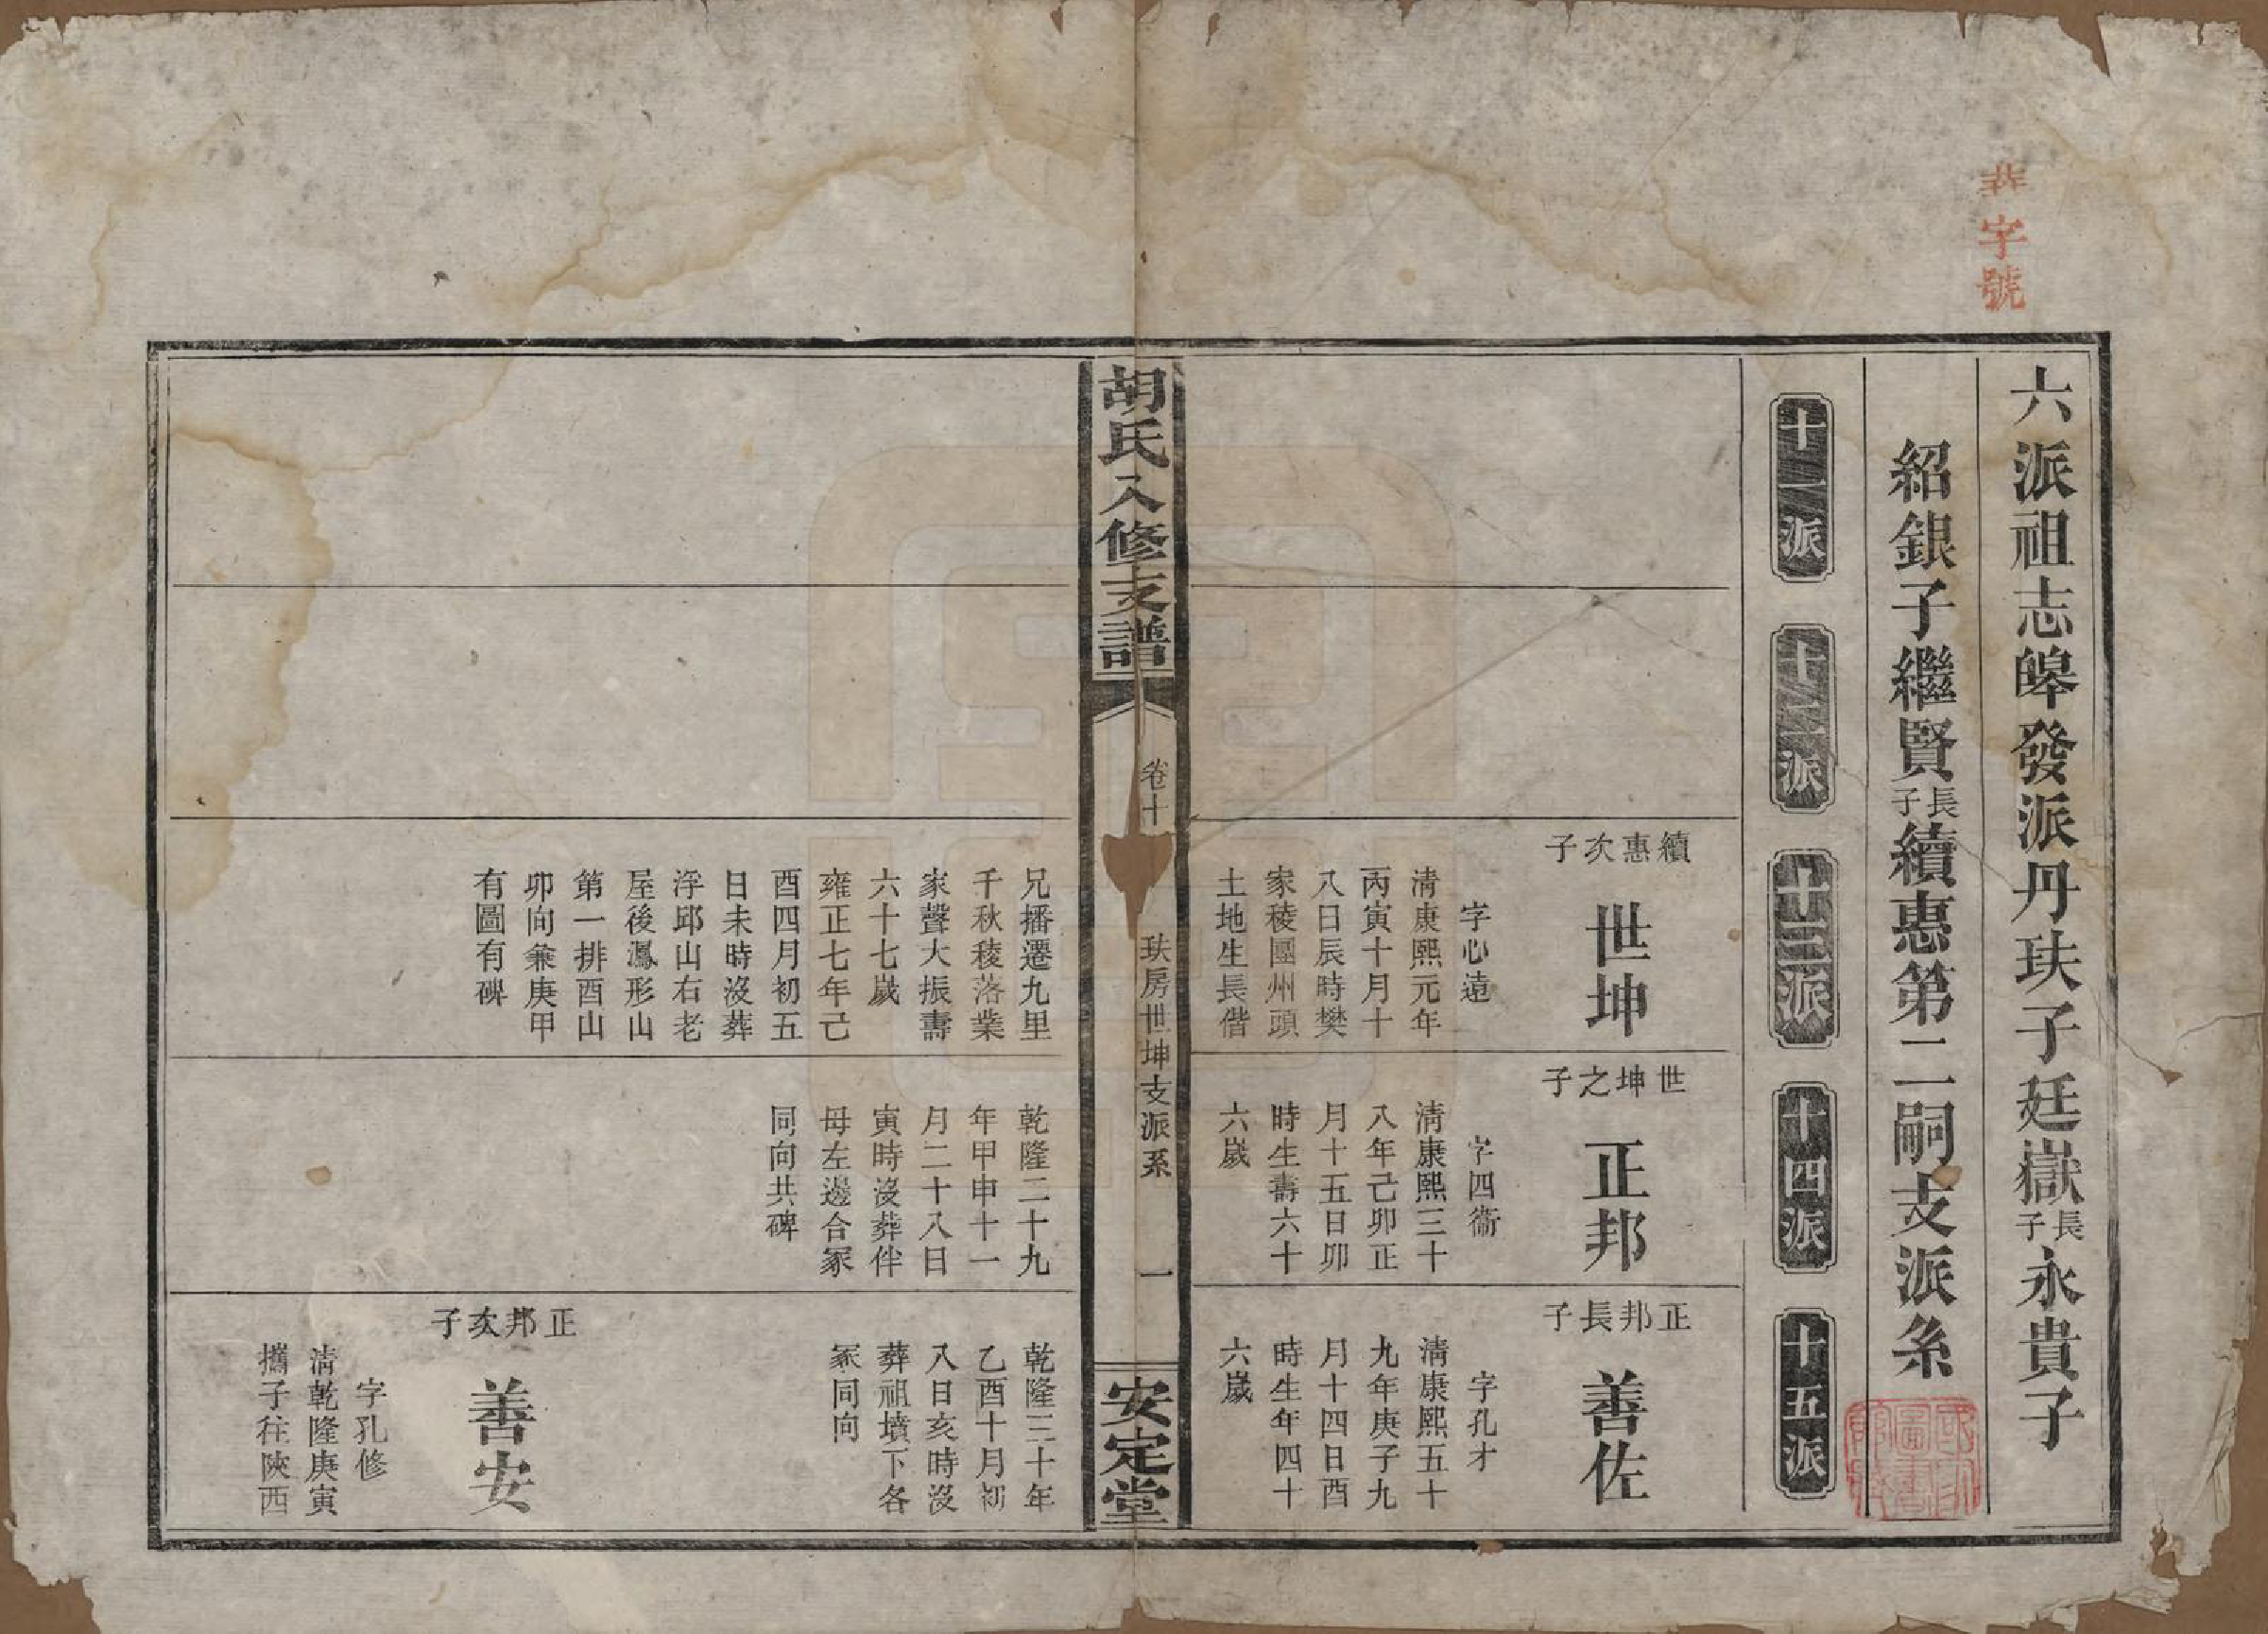 字號
六派祖志皞發派丹玞子廷嶽長子永貴子
紹銀子繼賢長子續惠第二嗣支派系
十一派
十二派
十三派
十四派
十五派
續惠次子
世坤
字心遠
清康熙元年
丙寅十月十
八日辰時樊
家稜團州頭
土地生長偕
世坤之子
正邦
字四衞
清康熙三十
八年己卯正
月十五日卯
時生壽六十
六歲
正邦長子
善佐
字孔才
清康熙五十
九年庚子九
月十四日酉
時生年四十
六歲
胡氏八修支譜
卷十
玞房世坤支派系
一
安定堂
兄播遷九里
千秋稜落業
家聲大振壽
六十七歲
雍正七年己
酉四月初五
日未時沒葬
浮邱山右老
屋後鳳形山
第一排酉山
卯向兼庚甲
有圖有碑
乾隆二十九
年甲申十一
月二十八日
寅時沒葬伴
母左邊合冢
同向共碑
乾隆三十年
乙酉十月初
八日亥時沒
葬祖墳下各
冢同向
正邦次子
善安
字孔修
清乾隆庚寅
攜子往陝西